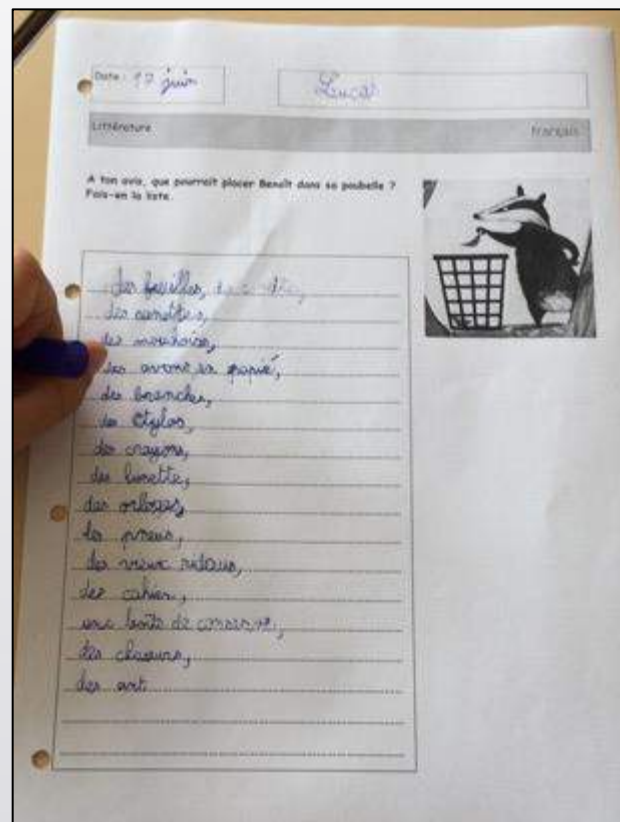 Date : 17 juin
Lucas
Littérature
français
A ton avis, que pourrait placer Benoît dans sa poubelle ?
Fais-en la liste.
des feuilles,
des canettes,
des mouchoirs,
des avont en papié,
des branches,
des stylos,
des crayons,
des lunette,
des orloges,
des pneus,
des vieux rideaus,
des cahier,
une boite de conserve,
des chaeurs,
des ant